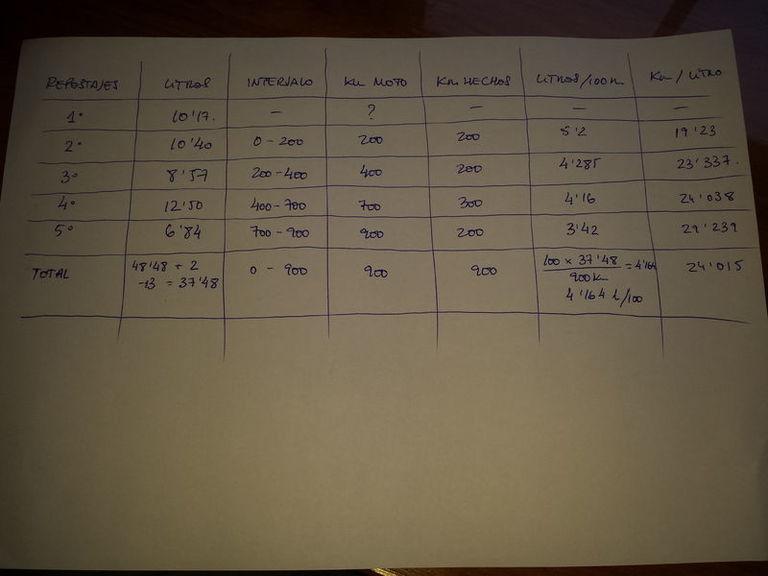 REPOSTAJES LITROS INTERVALO Km MOTO Km HECHOS LITROS/100Km. Km/LITRO
1º 10'17. — ? — — —
2º 10'40 0-200 200 200 5'2 19'23
3º 8'57 200-400 400 200 4'285 23'337.
4º 12'50 400-700 700 300 4'16 24'038
5º 6'84 700-900 900 200 3'42 29'239
TOTAL 48'48 + 2 0 - 900 900 900 100 x 37'48 = 4'164 24'015
-13 = 37'48 900 Km
4'164 L/100